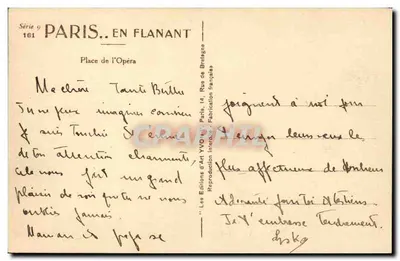 Série 9
161
PARIS.. EN FLANANT
Place de l'Opéra
Ma chère Tante
Tu ne peux imaginer combien
Je suis touchée
de ton attention charmante,
Cela nous fait un grand
plaisir de voir que tu ne nous
oublies jamais.
Maman et papa se
Les Editions d'Art YVON, Paris, 14, Rue de Bretagne
Reproduction interdite. Fabrication Française
joignent à moi pour
t'envoyer
plus affectueux
A bientôt
Je t'embrasse tendrement.